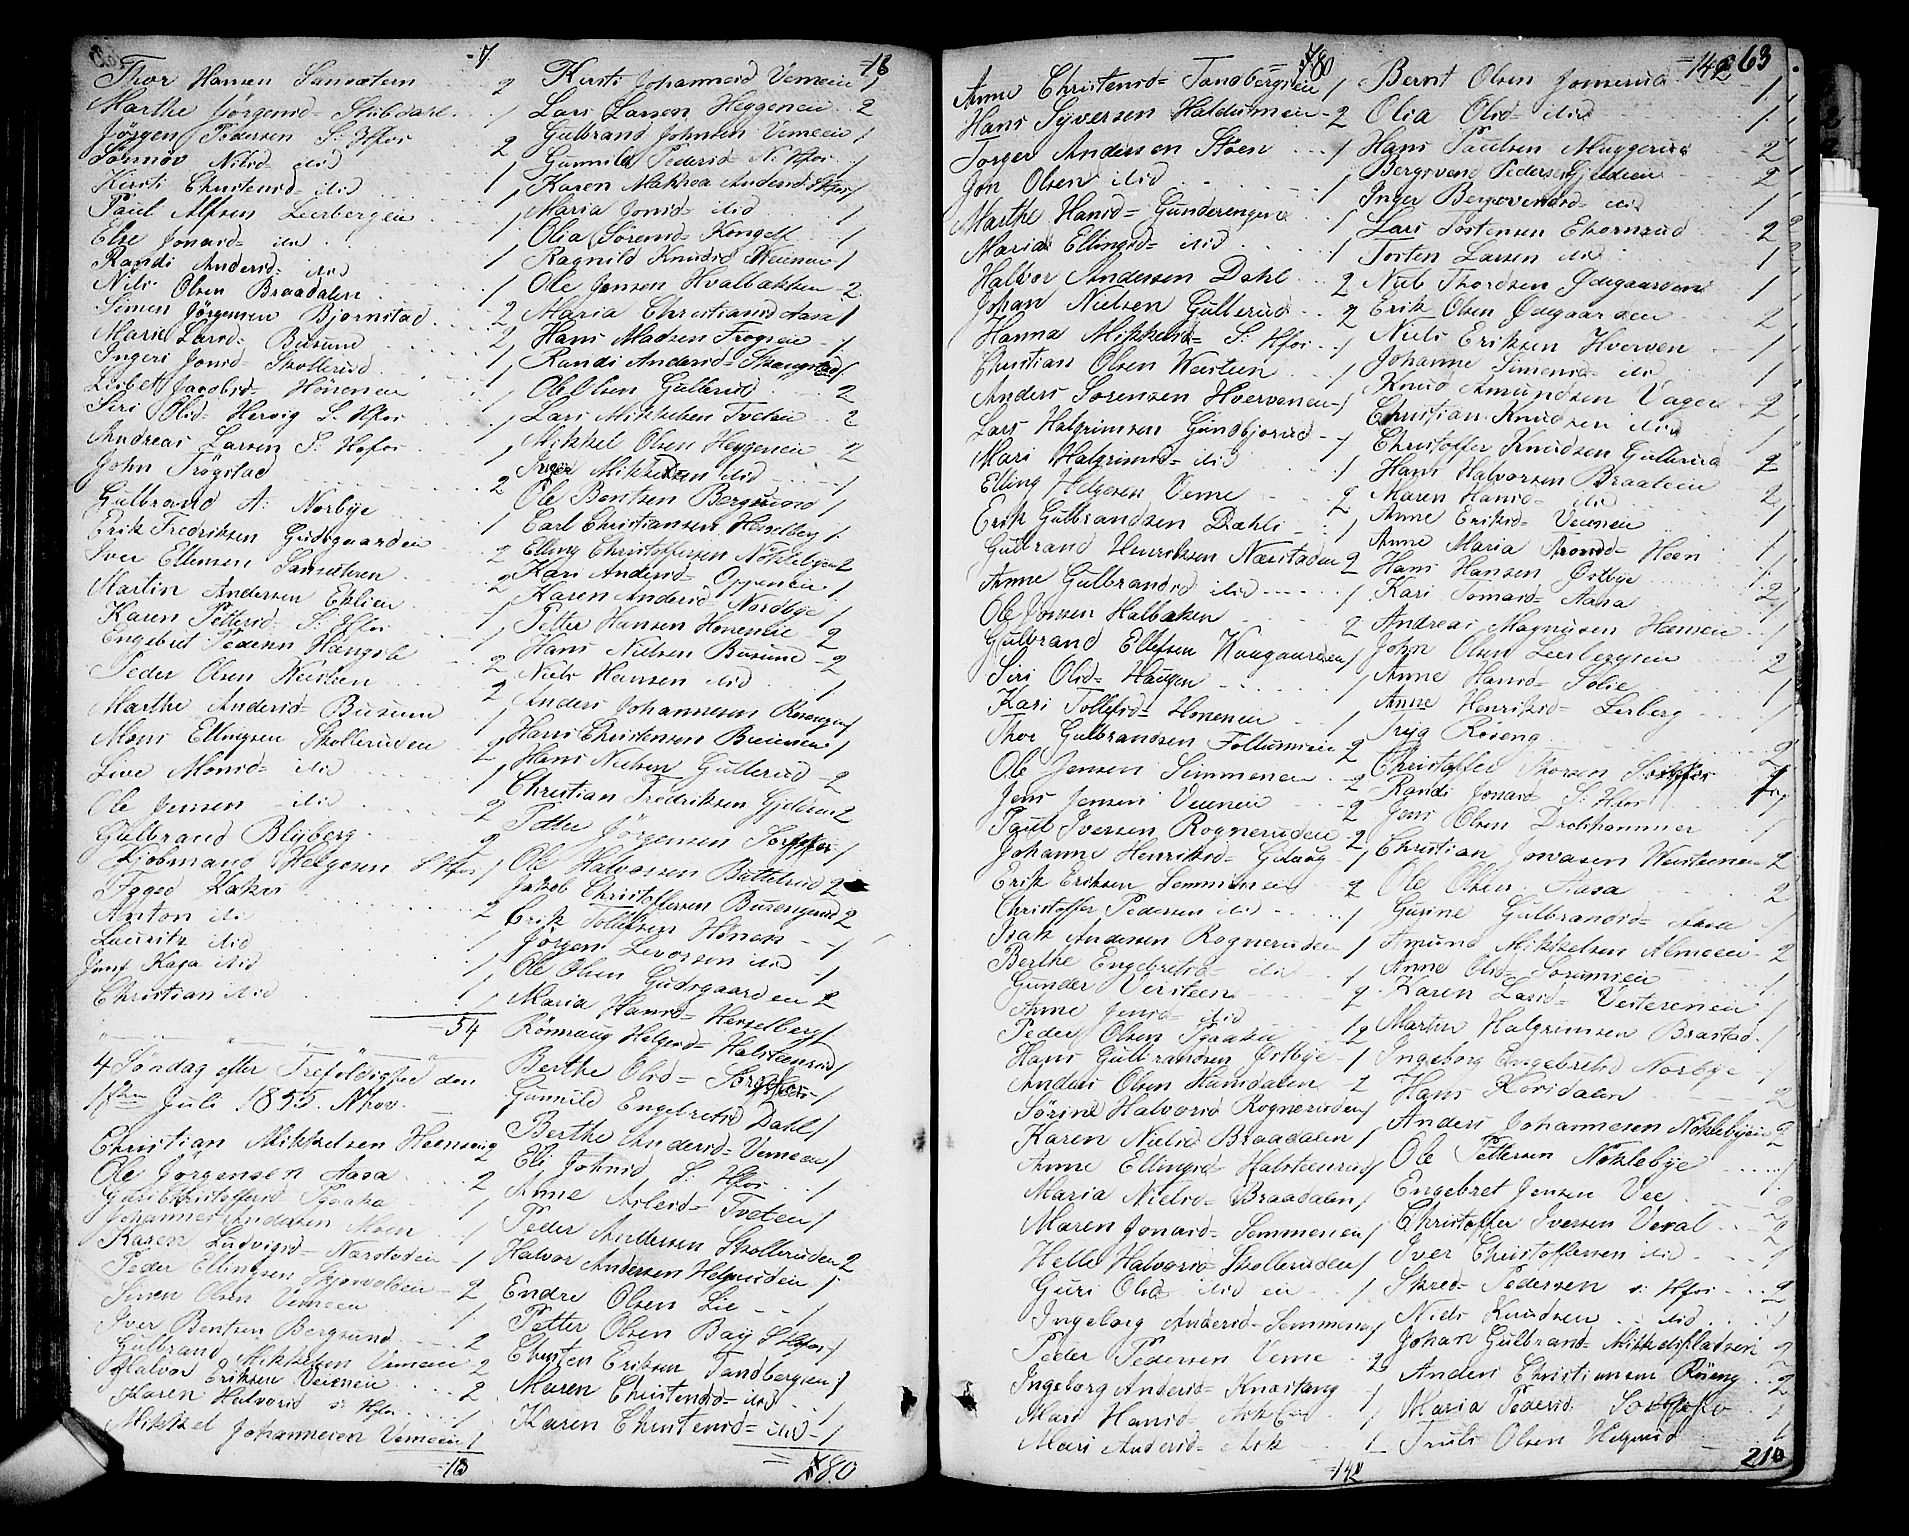 -7
Thor Hansen Sanssætern 2
Marthe Jørgensd= Stubdahl 1
Jörgen Pedersen S: Hfos 2
Sønnøv Nilsd= ibid 1
Kirsti Christensd= ibid 1
Paul Alfsen Leerbergeie 1
Else Jonasd= ibid 1
Randi Andersd= ibid 1
Nils Olsen Braadalen 1
Simen Jörgensen Bjørnstad 2
Marie Larsd= Busund 2
Ingeri Jonsd= Skollerud 1
Lisbet Jacobsd= Höneneie 1
Siri Olsd= Hervig S. Hfos 1
Andreas Larsen S: Hofos 1
John Trögstad 1
Gulbrand A: Norbye 2
Erik Fredriksen Gudsgaardeie 1
Iver Ellensen Sansæteren 2
Martin Andersen Eklien 2
Karen Pettersd= S: Hfos 1
Engebret Pedersen Hængsle 1
Peder Olsen Weisteen 2
Marthe Andersd= Busund 2
Mons Ellingsen Skolleruden 1
Live Monsd= ibid 2
Ole Jensen ibid 1
Gulbrand Bluberg 2
Kjøbmand Helgesen S Hfos 1
Foged Kaha
Anton ibid 2
Lauritz ibid 1
Josef Kaga ibid 1
Christian ibid 1
54
4 Söndag efter Trefoldighed den
1ste Juli 1855. Nkov.
Christian Mikkelsen Heenseng 2
Ole Jørgensen Aasa 2
Guri Christoffersd Pjaaka 1
Johannes Andersen Moen 1
Karen Ludvigsd= Næstadeie 1
Peder Ellingsen Skjørvoldeie 2
Simen Olsen Vemeeie 1
Iver Bentsen Bergsund 2
Gulbrand Mikkelsen Vemeeie 2
Halvor Eriksen Veieneie 2
Karen Halvorsd s: Hfos 1
Mikkel Johannesen Vemeeie 1
-18
-18
Kirsti Johannesd Vemeeie 1
Lars Larsen Heggeneie 2
Gulbrand Johnsen Vemeeie 1
Gunnild Pedersd= N. Hfos 1
Karen Mathea Andersd Hfos 1
Maria Jonsd= ibid 1
Olia Sørensd= Kongelf 1
Ragnild Knudsd Weienene 1
Ole Jensen Hvalbakken 2
Maria Christiansd Aasa 1
Hans Madsen Frogneie 1
Randi Andersd= Skaugstad 1
Ole Olsen Gullerud 2
Lars Mikkelsen Tveteie 2
Mikkel Olsen Heggeneie 2
Inger Mikkelsen ibid 1
Ole Bentsen Bergsund 1
Carl Christiansen Hesselberg 1
Elling Christoffersen Nöklebyeie 2
Kari Andersd= Oppeneie 1
Karen Andersd= Nordbye 1
Petter Hansen Honeneie 2
Hans Nielsen Busund 2
Niels Hansen ibid 1
Anders Johannesen Rösengen 1
Hans Christensen Bueienen 1
Hans Nielsen Gullerud 2
Christian Fredriksen Gjelderen 2
Petter Jörgensen Sørghfos 1
Ole Halvorsen Buttelrud 2
Jakob Christoffersen Burengrud 2
Erik Tollefsen Hönen 1
Jörgen Levorsen ibid 1
Ole Olsen Gudsgaarden 2
Maria Hansd= Hesselberg 1
Rönnaug Helgesd= Halsteensrud 1
Berthe Olsd= Sørghfos 1
Gunnild Engebretsd Dahl 1
Berthe Andersd= Vemeeie 1
Eli Johnsd S: Hfos 1
Anne Asledsd= Tveteie 1
Peder Andersen Skolleruden 2
Halvor Andersen Helgerudeie 1
Endre Olsen Lie 1
Petter Olsen Bay S Hfos 1
Christen Eriksen Tandbergseie 1
Maren Christensd= ibid 1
Karen Christensd= ibid 1
180
= 180
Anne Christensd= Tandbergseie 1
Hans Syversen Haldumeie 2
Torger Andersen Støen 1
Jon Olsen ibid 1
Marthe Hansd= Gunderengeie 1
Maria Ellingsd= ibid 1
Halvor Andersen Dahl 2
Johan Nielsen Gullerud 2
Hanna Mikkelsd= S: Hfos 1
Christian Olsen Weisteen 1
Anders Sorensen Hverveneie 1
Lars Halgrimsen Gundbjørud 1
Mari Halgrimsd= ibid 1
Elling Helgesen Veme 2
Erik Gulbrandsen Dæhli 1
Gulbrand Henriksen Næstadeie 2
Anne Gulbrandsd ibid 1
Ole Jonsen Halbaken 2
Gulbrand Ellefsen Kongaardseie 1
Siri Olsd= Haugen 1
Kari Tollefsd= Honeneie 1
Thor Gulbrandsen Follumseie 2
Ole Jensen Semmeneie 2
Jens Jensen Veieneie 2
Paul Iversen Rogneruden 2
Johanne Henriksd= Gjeloug 1
Erik Eriksen Semmeneie 2
Christoffer Pedersen ibid 1
Isak Andersen Rogneruden 1
Berthe Engebretsd= ibid 1
Gunder Versteen 2
Anne Jensd= ibid 1
Peder Olsen Pjaaka 2
Hans Gulbrandsen Østbye 1
Anders Olsen Hamdalen 2
Sörine Halvorsd Rogneruden 1
Karen Nielsd Braadalen 1
Anne Ellingsd Halsteensrud 1
Maria Nielsd= Braadalen 1
Maren Jonasd= Semmeneie 1
Helle Halvorsd= Skolleruden 1
Guri Olsd ibid eie 1
Ingeborg Andersd= Semmeneie 1
Peder Pedersen Veme 2
Ingeborg Andersd= Knæstang 1
Mari Hansd= Ask Eie 1
Mari Andersd= Ask 1
-142
-142 63
Bernt Olsen Jonserud 1
Olia Olsd= ibid 1
Hans Paulsen Muggerud 2
Bergsvend Pedersen Gjeldeie 2
Inger Bergsvendsd= ibid 1
Lars Tostensen Ekornrud 2
Torsten Larsen ibid 1
Niels Thordsen Ødegaarden 1
Erik Olsen Ødegaarden 2
Niels Eriksen Hverven 1
Johanne Simensd= ibid 1
Knud Amundsen Vager 2
Christian Knudsen ibid 1
Christoffer Knudsen Gulerud 2
Hans Halvorsen Braateeie 2
Maren Hansd= ibid 1
Anne Eriksd= Veieneie 1
Anne Maria Aronsd= Heen 1
Hans Hansen Østbye 1
Kari Tomasd= Aasa 1
Andreas Magnusen Hænseie 1
John Olsen Leerbergseie 2
Anne Hansd= Solie 1
Anne Henriksd= Lerberg 1
Tryg Röseng 2
Christoffer Thorsen Sørghfos 1
Randi Jonasd= S: Hfos 1
Jens Olsen Drolshammer 1
Christian Jonasen Weisteeneie 2
Ole Olsen Aasa 2
Gusine Gulbrandsd= Aasa 1
Amund Mikkelsen Almeeie 2
Anne Olsd= Sørumeie 1
Karen Larsd= Vesterneie 1
Martin Halgrimsen Braastad 1
Ingeborg Engebretsd Norbye 1
Hans Korsdalen 2
Anders Johannesen Nöklebyeie 2
Ole Pettersen Nöklebye 1
Engebret Jensen Vee 1
Christoffer Iversen Veral 2
Iver Christoffersen ibid 1
Skred= Pedersen s: Hfos 2
Niels Knudsen ibid 1
Johan Gulbrand= Mikkelspladsen 2
Anders Christiansen Röseng 2
Maria Pedersd Sørghfos 1
Truls Olsen Helgerud 1
210